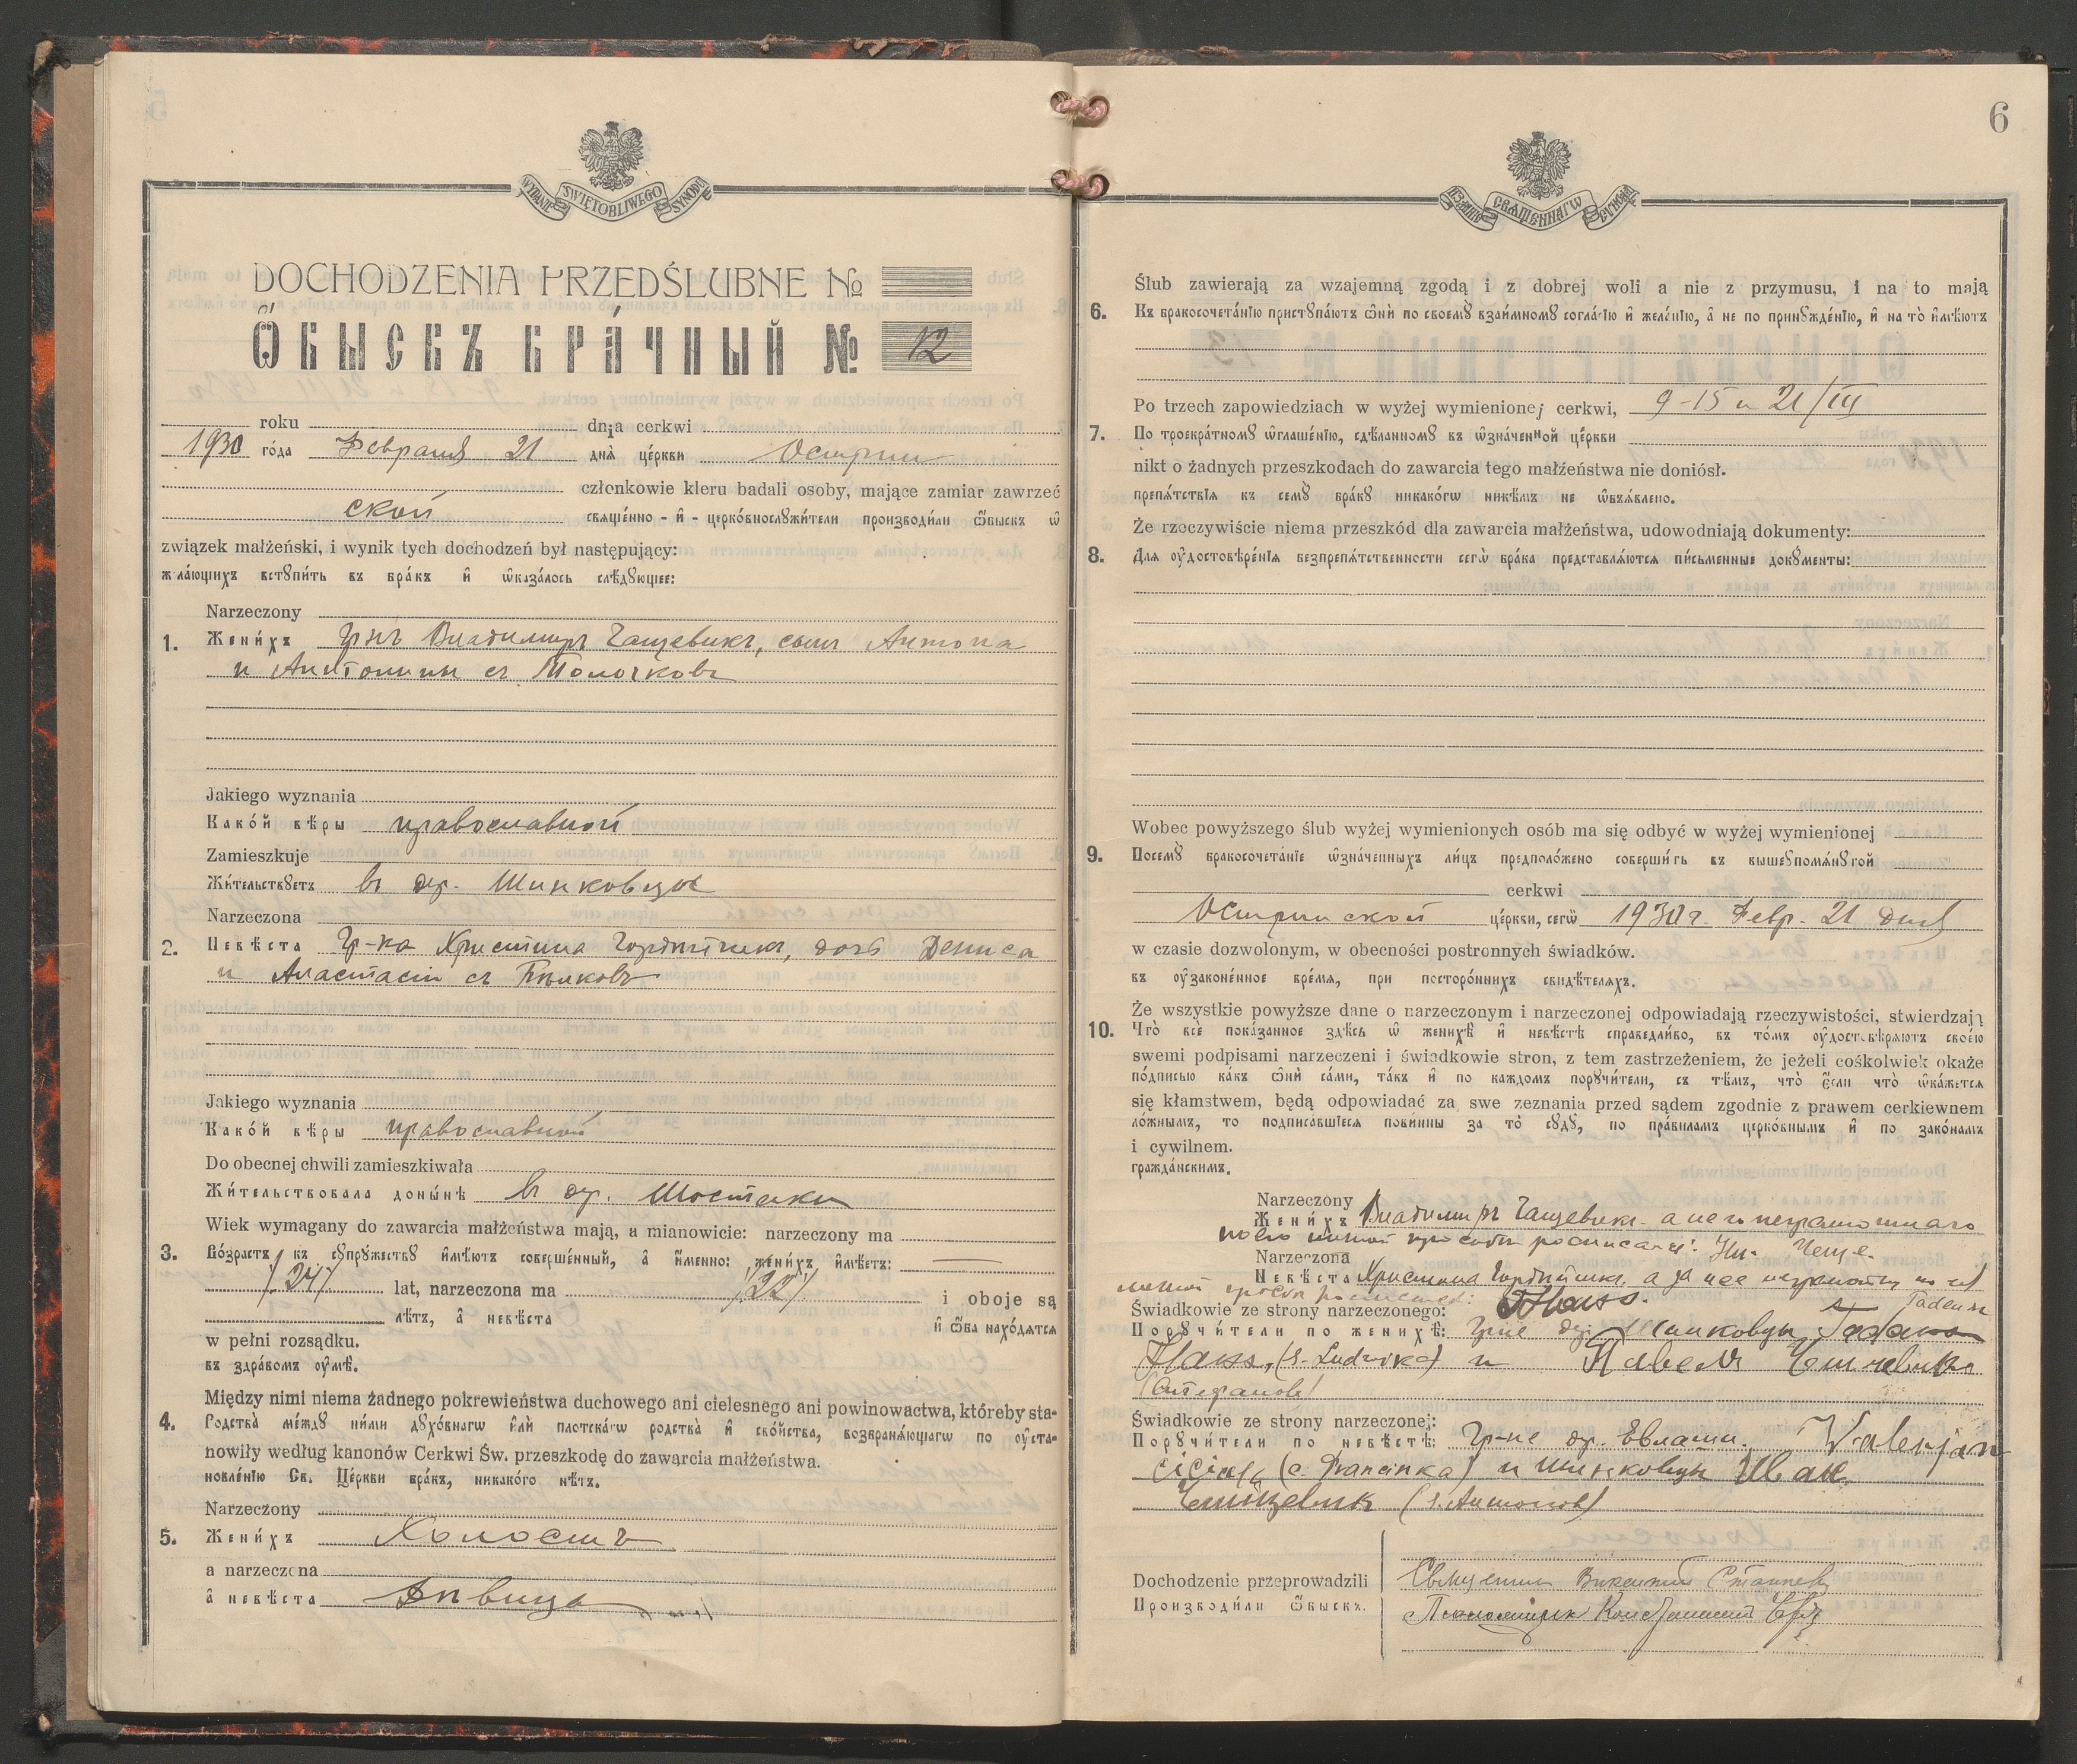 WYDANIE ŚWIĘTOBLIWEGO SYNODU
DOCHODZENIA PRZEDŚLUBNE №
Ѻ҆БЫСКЪ БРА́ЧНЫЙ № 12
roku dnia cerkwi
1930 го́да Февраля 21 днѧ̀ це́ркви Острин
członkowie kleru badali osoby, mające zamiar zawrzeć
ской свѧще́нно - и҆ - церко́внослꙋжи́тели производи́ли ѻ҆́быскъ ѡ҆
związek małżeński, i wynik tych dochodzeń był następujący:
жела́ющихъ вступи́ть въ бра́къ и҆ ѡ҆каза́лось слѣ́дꙋющее:
Narzeczony
1. Жени́хъ Гр-нъ Владимиръ Чащевикъ, сынъ Антона
и Антонины съ Толочковъ
Jakiego wyznania
Како́й вѣ́ры православной
Zamieszkuje
Жи́тельствꙋетъ въ дер. Шинковцы
Narzeczona
2. Невѣ́ста Гр-ка Христина дочь Дениса
и Анастасіи съ
Jakiego wyznania
Како́й вѣ́ры православной
Do obecnej chwili zamieszkiwała
Жи́тельствовала доны́нѣ въ дер. Шостаки
Wiek wymagany do zawarcia małżeństwa mają, a mianowicie: narzeczony ma
3. Во́зрастъ къ сꙋпрꙋ́жествꙋ и҆мѣ́ютъ соверше́нный, а҆ и҆́менно: жени́хъ и҆мѣ́етъ:
/24/ lat, narzeczona ma /22/ i oboje są
лѣ́тъ, а҆ невѣ́ста и҆ ѻ҆́ба нахо́дѧтсѧ
w pełni rozsądku.
въ здра́вомъ ᲂу҆мѣ̀.
Między nimi niema żadnego pokrewieństwa duchowego ani cielesnego ani powinowactwa, któreby sta-
4. Родства̀ ме́ждꙋ ни́ми дꙋхо́внагѡ и҆лѝ плотска́гѡ родства̀ и҆ сво́йства, возбранѧ́ющагѡ по ᲂу҆ста-
nowiły według kanonów Cerkwi Św. przeszkodę do zawarcia małżeństwa.
новле́нїю Св. Це́ркви бра́къ, никако́го нѣ́тъ.
Narzeczony
5. Жени́хъ Холостъ
a narzeczona
а҆ невѣ́ста Дѣвица
6
ИЗДАНІЕ СВѦЩЕННАГѠ СѴНОДА
Ślub zawierają za wzajemną zgodą i z dobrej woli a nie z przymusu, i na to mają
6. Къ бракосочета́нїю пристꙋпа́ютъ ѻ҆нѝ по своемꙋ̀ взаи́мномꙋ согла́сїю и҆ жела́нїю, а҆ не по принꙋжде́нїю, и҆ на то̀ и҆мѣ́ютъ
Po trzech zapowiedziach w wyżej wymienionej cerkwi, 9-15 и 21/III
7. По троекра́тномꙋ ѡ҆глаше́нїю, сдѣ́ланномꙋ въ ѡ҆зна́ченной це́ркви
nikt o żadnych przeszkodach do zawarcia tego małżeństwa nie doniósł.
препѧ́тствїѧ къ семꙋ̀ бра́кꙋ никако́гѡ никѣ́мъ не ѡ҆б̾ѧ́влено.
Że rzeczywiście niema przeszkód dla zawarcia małżeństwa, udowodniają dokumenty:
8. Для ᲂу҆достовѣ́ренїѧ безпрепѧ́тственности сегѡ̀ бра́ка представлѧ́ютсѧ пи́сьменные докꙋме́нты:
Wobec powyższego ślub wyżej wymienionych osób ma się odbyć w wyżej wymienionej
9. Посемꙋ̀ бракосочета́нїе ѡ҆зна́ченныхъ ли́цъ предполо́жено соверши́ть въ вышеꙋпомѧ́нꙋтой
cerkwi
Остринской це́ркви, сегѡ̀ 1930 г. Февр. 21 дня
w czasie dozwolonym, w obecności postronnych świadków.
въ ᲂу҆зако́ненное вре́мѧ, при посторо́ннихъ свидѣ́телѧхъ.
Że wszystkie powyższe dane o narzeczonym i narzeczonej odpowiadają rzeczywistości, stwierdzają
10. Что̀ всѐ пока́занное здѣ́сь ѡ҆ женихѣ̀ и҆ невѣ́стѣ справедли́во, въ то́мъ ᲂу҆достовѣрѧ́ютъ свое́ю
swemi podpisami narzeczeni i świadkowie stron, z tem zastrzeżeniem, że jeżeli cośkolwiek okaże
по́дписью ка́къ ѻ҆нѝ са́ми, та́къ и҆ по каждомъ порꙋчи́тели, съ тѣ́мъ, что̀ є҆́сли что̀ ѡ҆ка́жетсѧ
się kłamstwem, będą odpowiadać za swe zeznania przed sądem zgodnie z prawem cerkiewnem
ло́жнымъ, то подписа́вшїесѧ пови́нны за то̀ сꙋдꙋ̀, по пра́виламъ церко́внымъ и҆ по зако́намъ
i cywilnem.
гражда́нскимъ.
Narzeczony
Жени́хъ Владимиръ Чащевикъ а за него неграмотнаго
по его личной просьбѣ росписался:
Narzeczona
Невѣ́ста Христина а за нее неграмотну по ея
личной просьбѣ росписался: Tadeusz
Świadkowie ze strony narzeczonego:
Порꙋчи́тели по женихѣ̀: Гр-не дер. Шинковцы
(s. Ludwika) и Павелъ
(Стефановъ)
Świadkowie ze strony narzeczonej:
Порꙋчи́тели по невѣ́стѣ: Гр-не дер. Евлаши Walerjan
(с. Franćiska) и Шинковцы Иван
(с. Антоновъ)
Dochodzenie przeprowadzili Священникъ Викентій
Производи́ли ѻ҆́быскъ. Псаломщикъ Константинъ